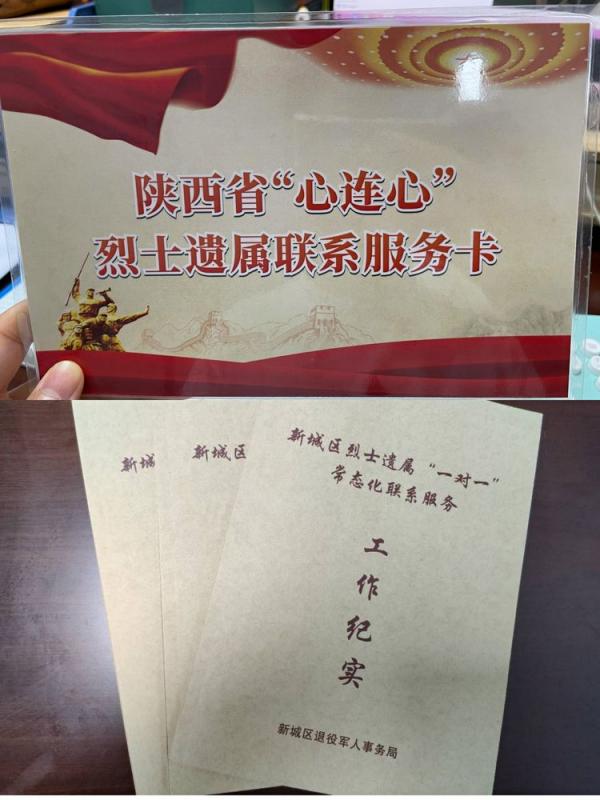 陕西省“心连心”
烈士遗属联系服务卡
新城
新城区
新城区烈士遗属“一对一”
常态化联系服务
工
作
纪
实
新城区退役军人事务局